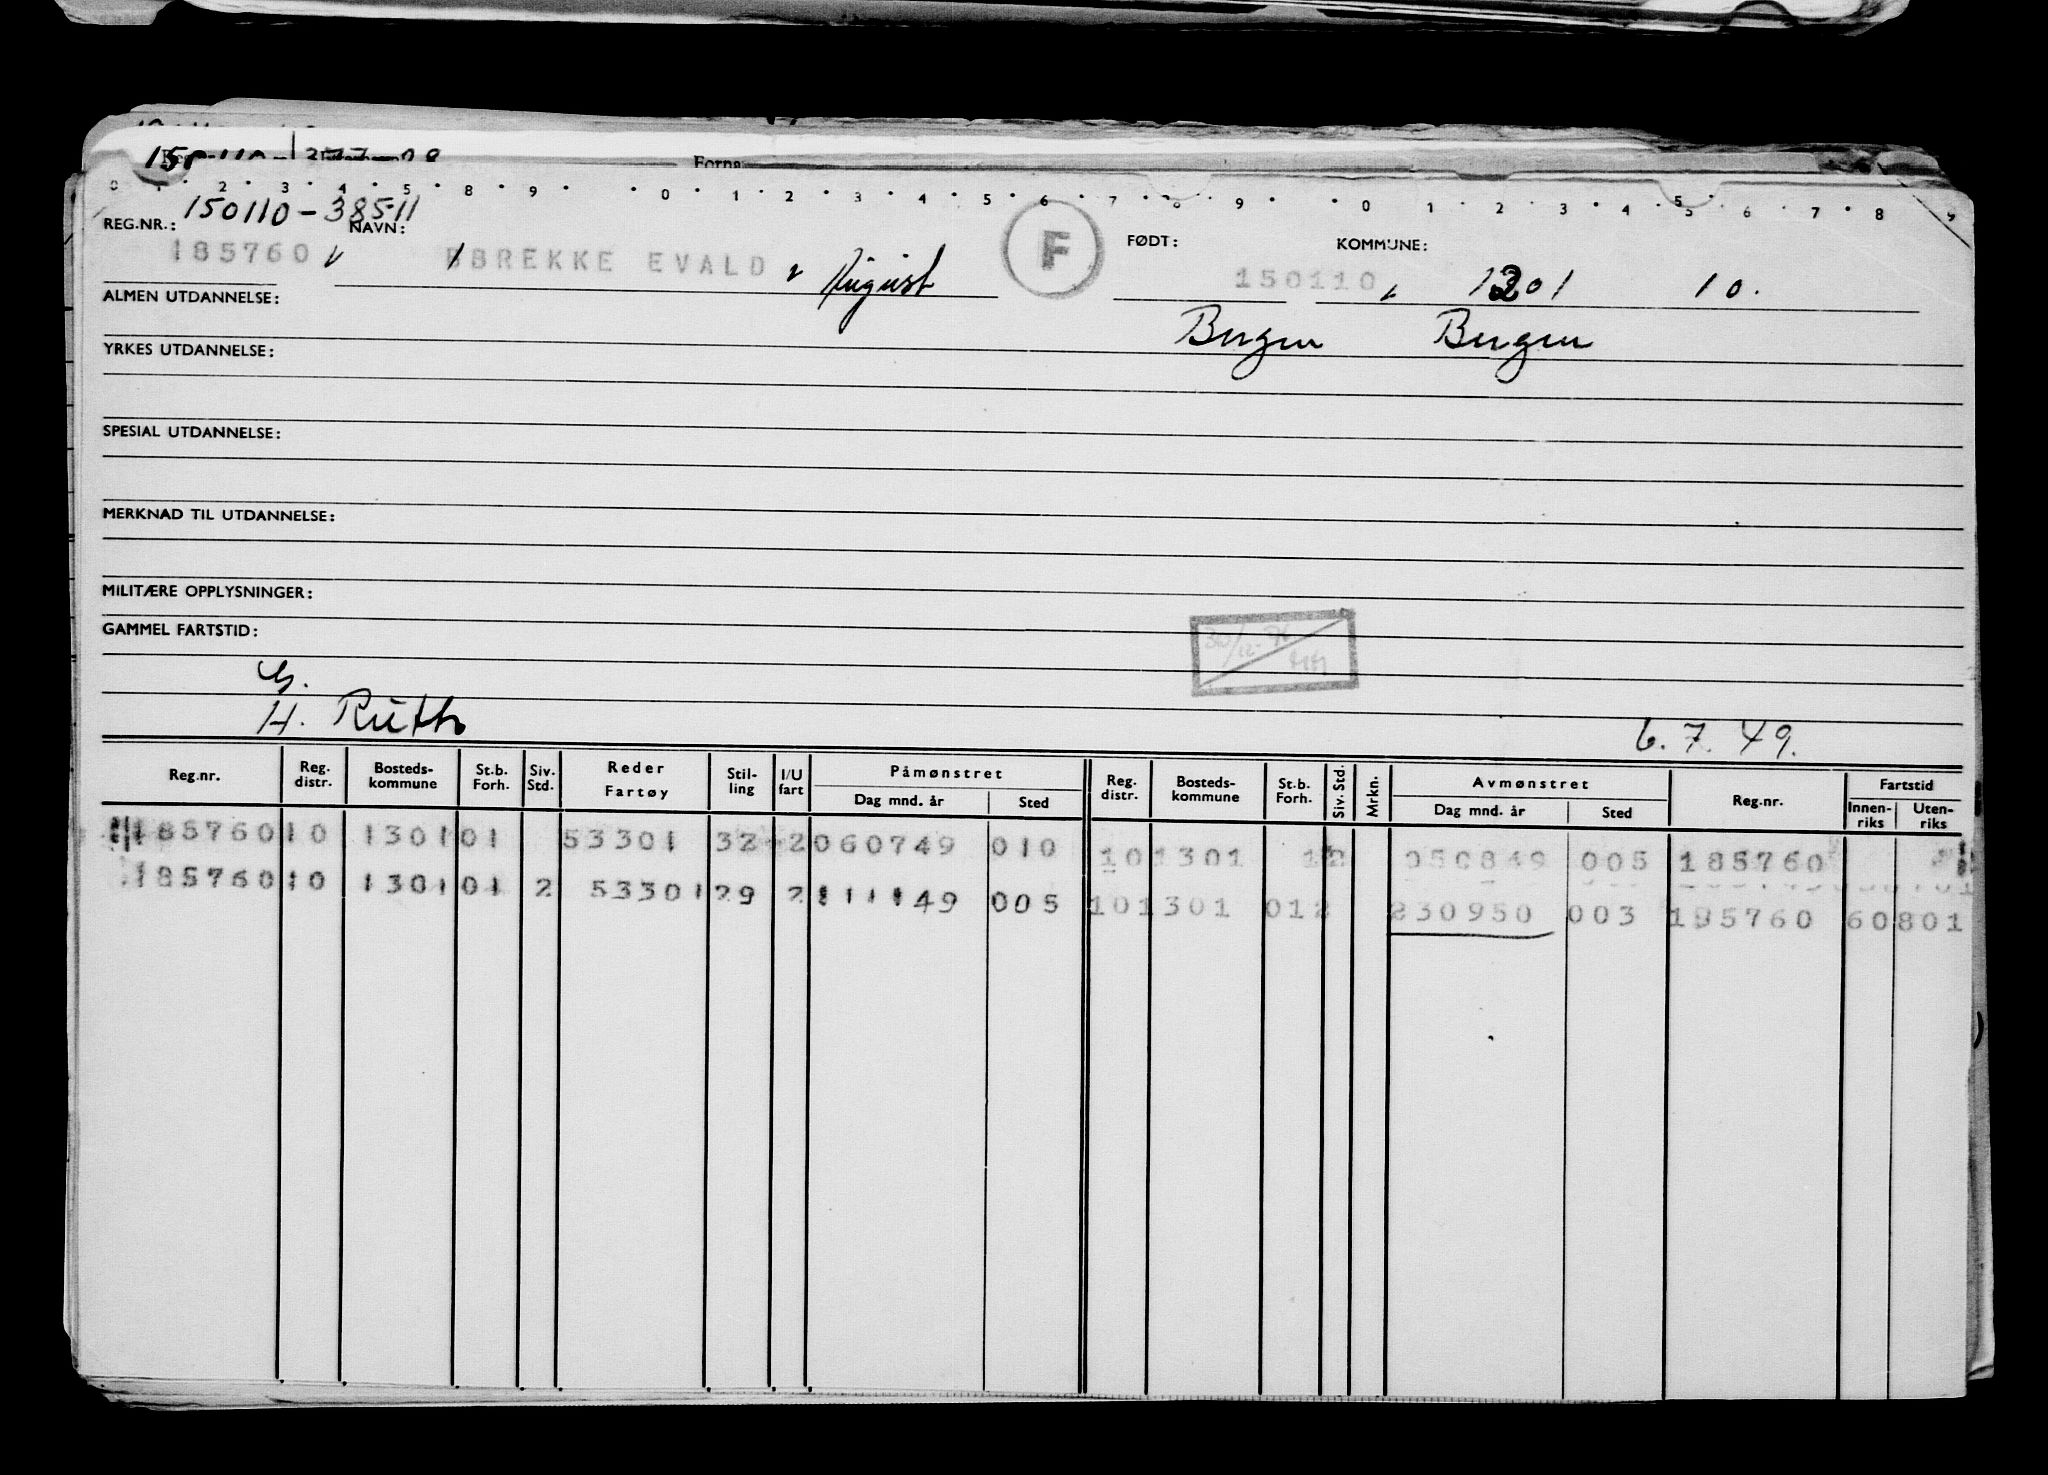 Forna
0 1 2 3 4 5 8 9 0 1 2 3 4 5 6 7 8 9 0 1 2 3 4 5 6 7 8 9
150110-38511
REG.NR.: NAVN: F FØDT: KOMMUNE:
185760 BREKKE EVALD August 150110 1301 10.
ALMEN UTDANNELSE:
Bergen Bergen
YRKES UTDANNELSE:
SPESIAL UTDANNELSE:
MERKNAD TIL UTDANNELSE:
MILITÆRE OPPLYSNINGER:
GAMMEL FARTSTID:
G.
H. Ruth 6.7.49.
Reg.nr. Reg. distr. Bosteds- kommune St.b. Forh. Siv. Std. Reder Fartøy Stil- ling I/U fart Påmønstret Dag mnd. år Sted Reg. distr. Bosteds- kommune St.b. Forh. Siv. Std. Mrkn. Avmønstret Dag mnd. år Sted Reg.nr. Fartstid Innen- riks Uten- riks
185760 10 1301 01 53301 32 2 060749 010 10 1301 1 2 050849 005 185760
185760 10 1301 01 2 53301 29 2 111149 005 10 1301 01 2 230950 003 185760 60801